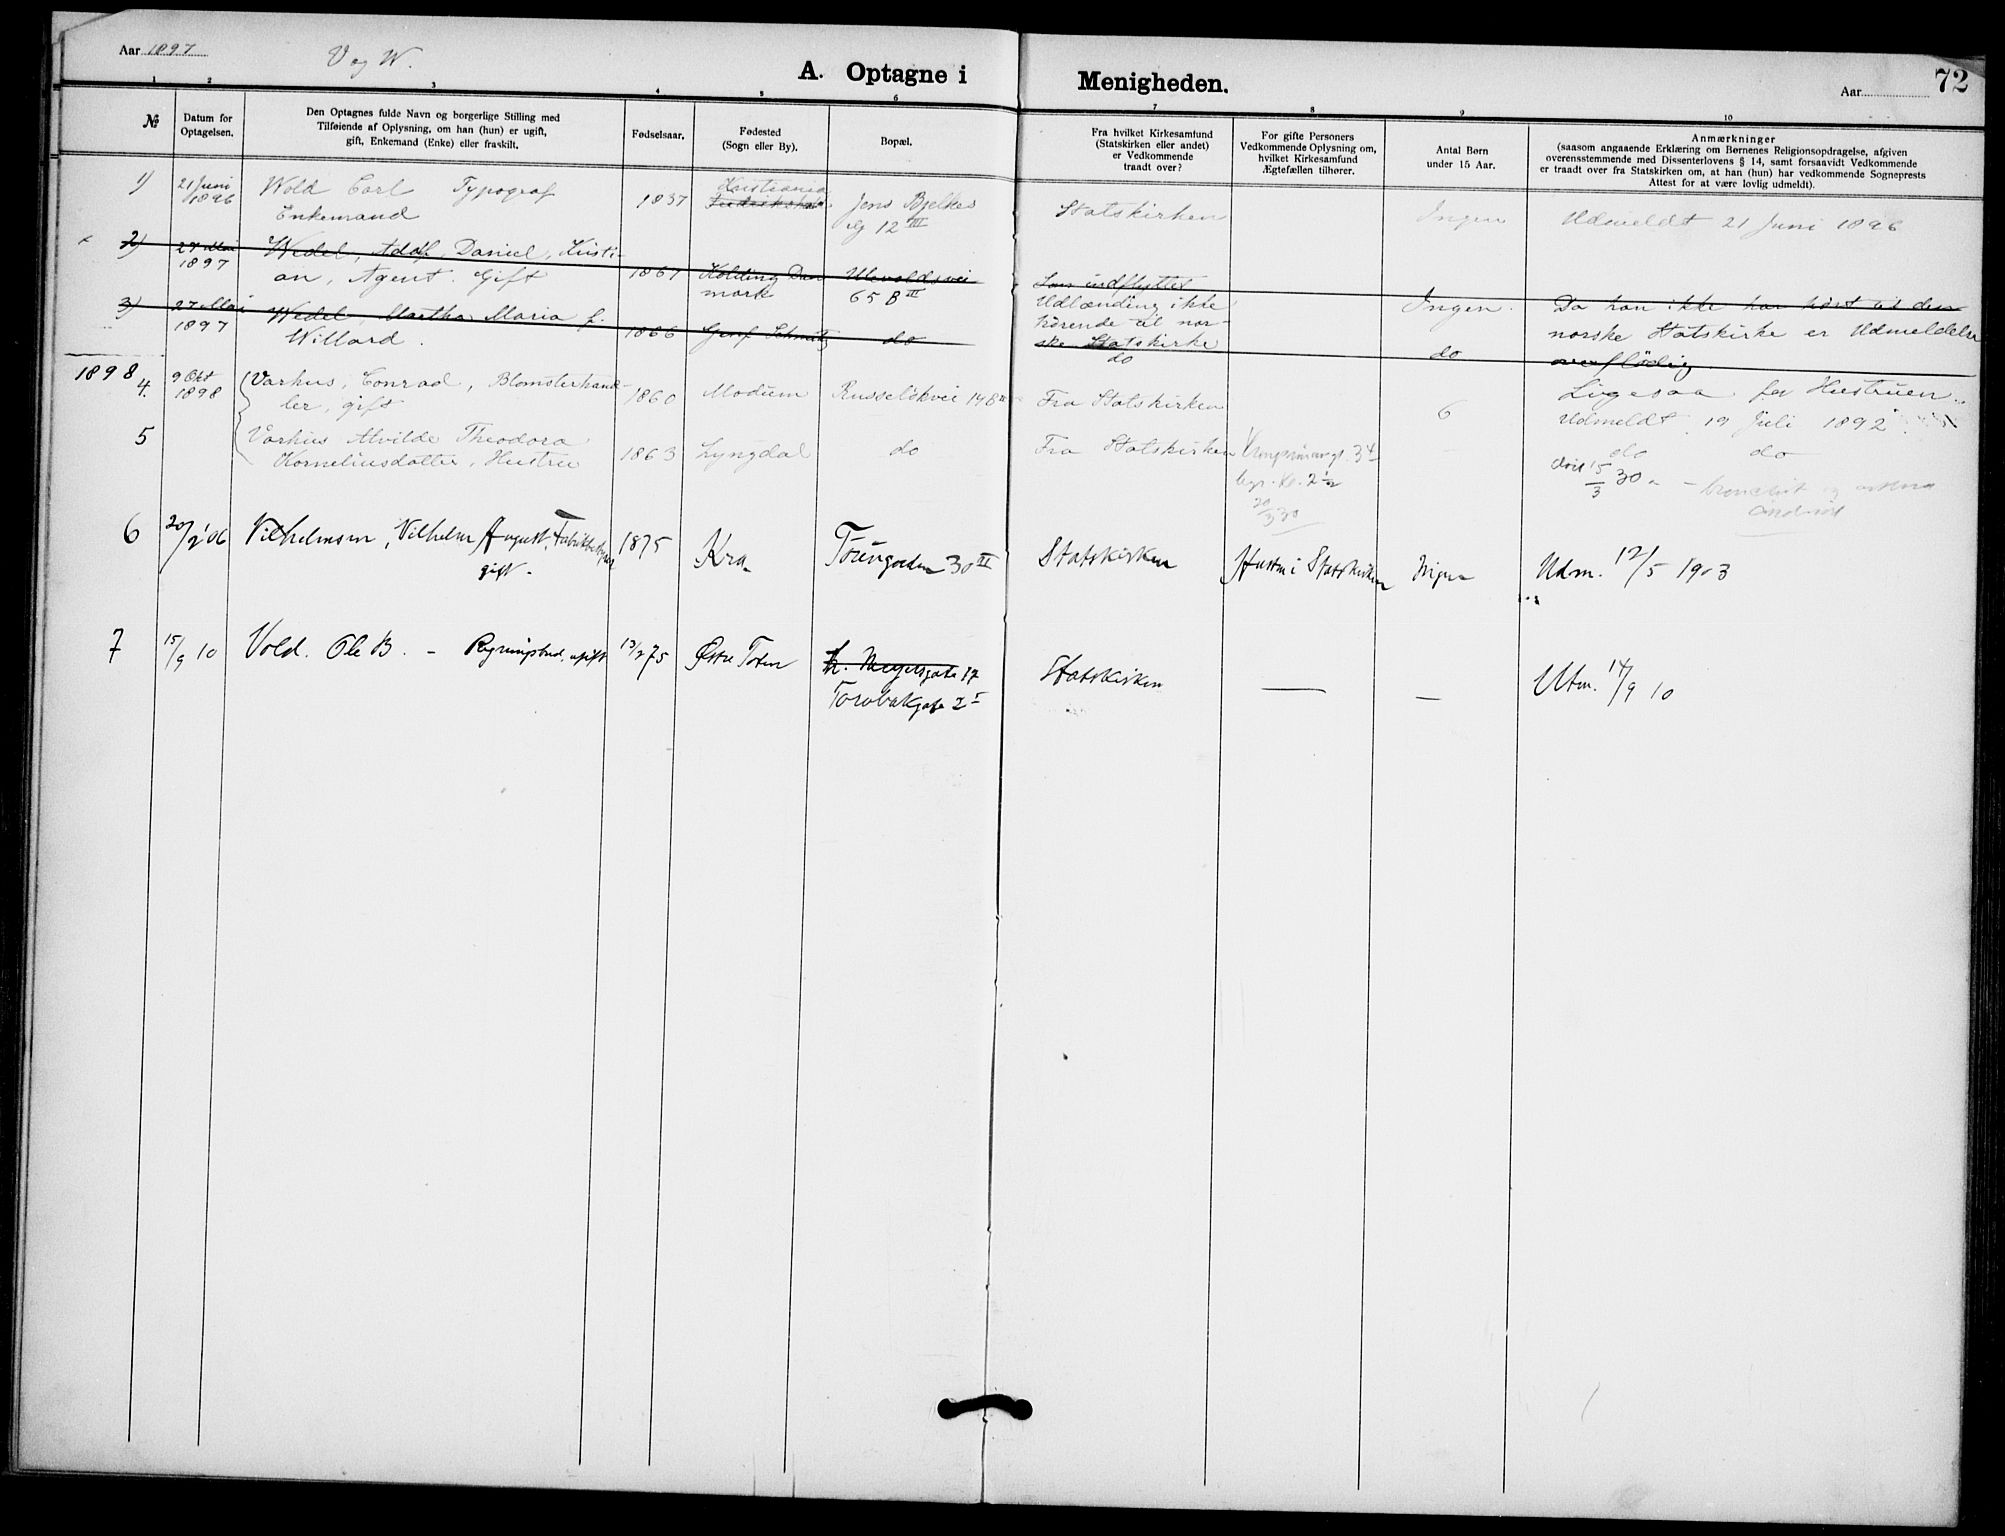 Aar 1897
V og W.
A. Optagne i Menigheden.
Aar
72
1 2 3 4 5 6 7 8 9 10
№
Datum for
Optagelsen.
Den Optagnes fulde Navn og borgerlige Stilling med
Tilføiende af Oplysning, om han (hun) er ugift,
gift, Enkemand (Enke) eller fraskilt.
Fødselsaar.
Fødested
(Sogn eller By).
Bopæl.
Fra hvilket Kirkesamfund
(Statskirken eller andet)
er Vedkommende
traadt over?
For gifte Personers
Vedkommende Oplysning om,
hvilket Kirkesamfund
Ægtefællen tilhører.
Antal Børn
under 15 Aar.
Anmærkninger
(saasom angaaende Erklæring om Børnenes Religionsopdragelse, afgiven
overensstemmende med Dissenterlovens § 14, samt forsaavidt Vedkommende
er traadt over fra Statskirken om, at han (hun) har vedkommende Sogneprests
Attest for at være lovlig udmeldt).
1)
21 Juni
1896
Wold Carl Typograf
Enkemand
1837
Kristiania
Jens Bjelkes
Sg 12 III
Statskirken
Ingen
Udmeldt 21 Juni 1896
2)
27 Mai
1897
Wedel, Adolf, Daniel, Kristi-
an, Agent. Gift
1867
Kolding Dan
mark
Ulevoldsvei
65 B III
Som indflyttet
Udlænding ikke
hørende til nor-
ske Statskirke
Ingen.
Da han ikke har hørt til den
norske Statskirke er Udmeldelse
overflødig.
3)
27 Mai
1897
Wedel, Martha Maria f.
Willard.
1866
Genf Schweitz
do
do
do
Ligesaa for Hustruen.
1898
4.
9 Okt
1898
Varhus, Conrad, Blomsterhand-
ler, gift
1860
Modum
Russeløkvei 14 B
Fra Statskirken
6
Udmeldt 19 Juli 1892
5
Varhus Alvilde Theodora
Korneliusdatter, Hustru
1863
Lyngdal
do
Fra Statskirken
34
2 1/2
20/3 30
do do
død 15/3 30
6
20/2 06
Vilhelmsen, Vilhelm August, Fabrikbestyrer
gift.
1875
Kra.
Torvgaden 30 III
Statskirken
Hustru i Statskirken
Ingen
Udm. 12/5 1903
7
15/9 10
Vold. Ole B. - ugift
13/2 75
Østre Toten
h. Meyersgate 17
2 I
Statskirken
—
—
Utm. 14/9 10